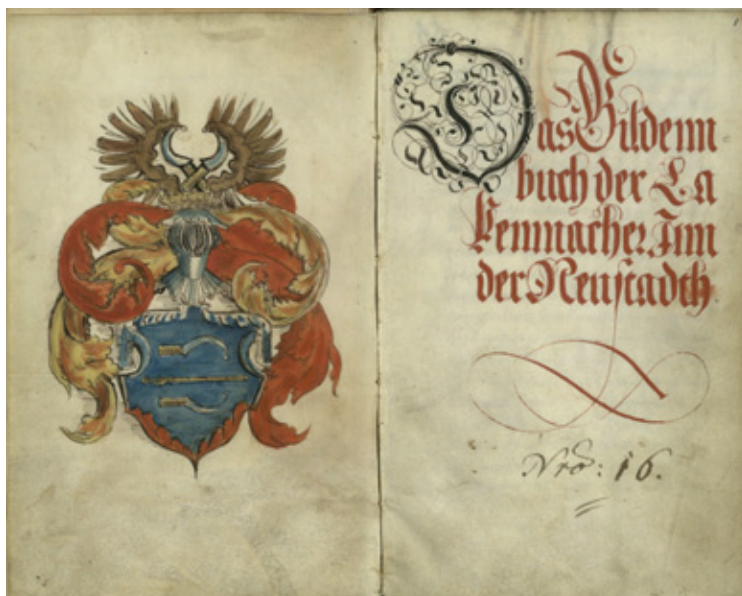 Das Gildenn
buch der La
kenmacher Inn
der Neustadth
Nro: 16.